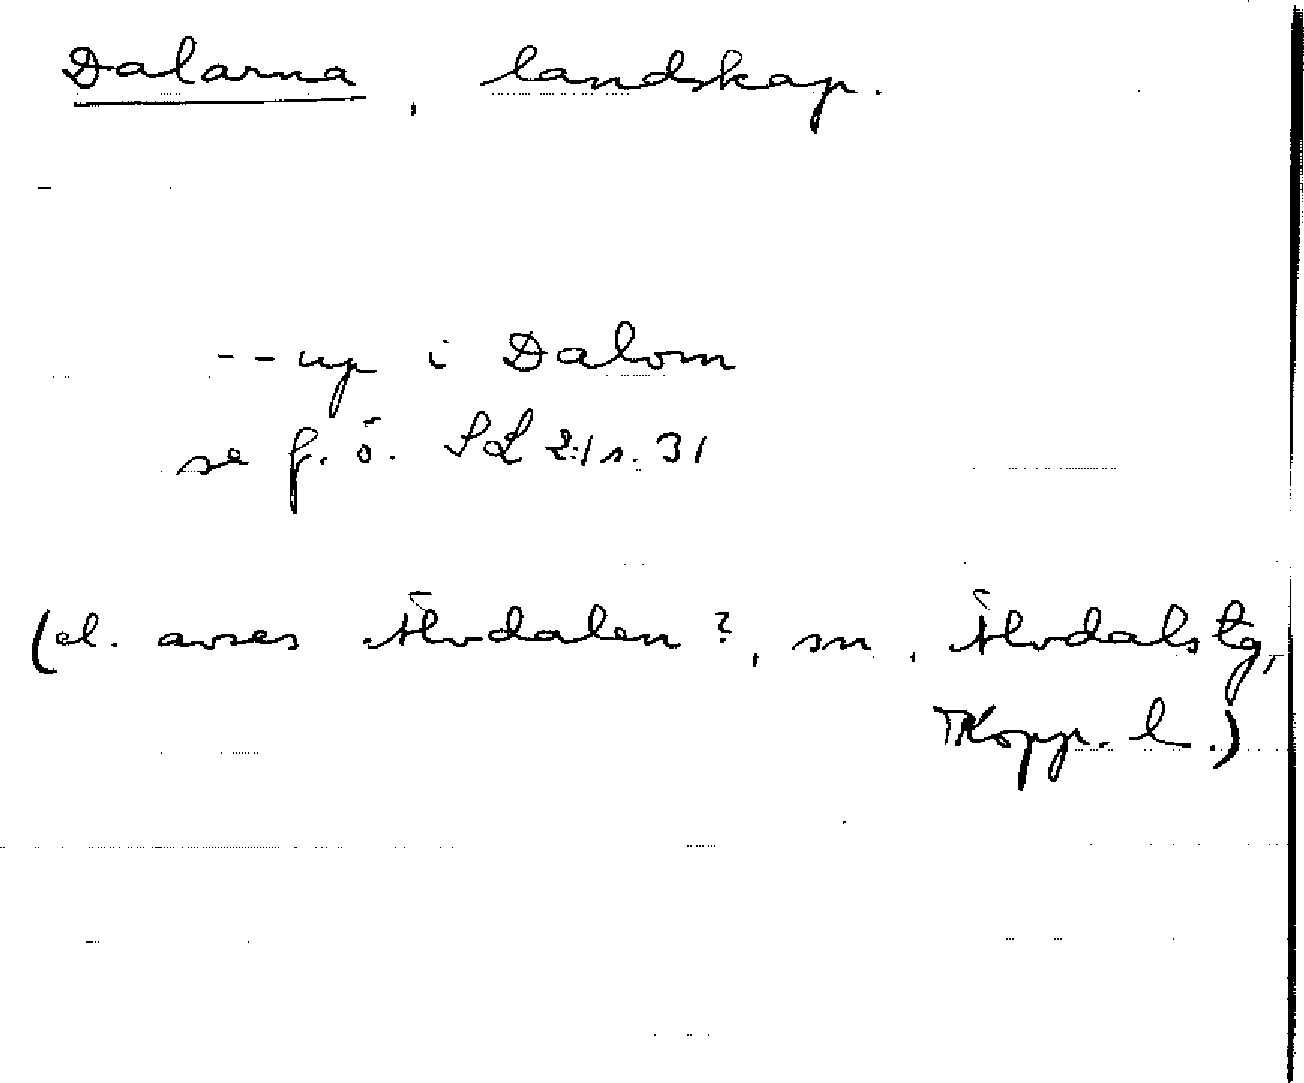 Dalarna, landskap.
-- up i Dalom
se f. ö. SL 2:1 s. 31
(el. avses Älvdalen?, sn, Älvdals tg,
Kopp. l.)